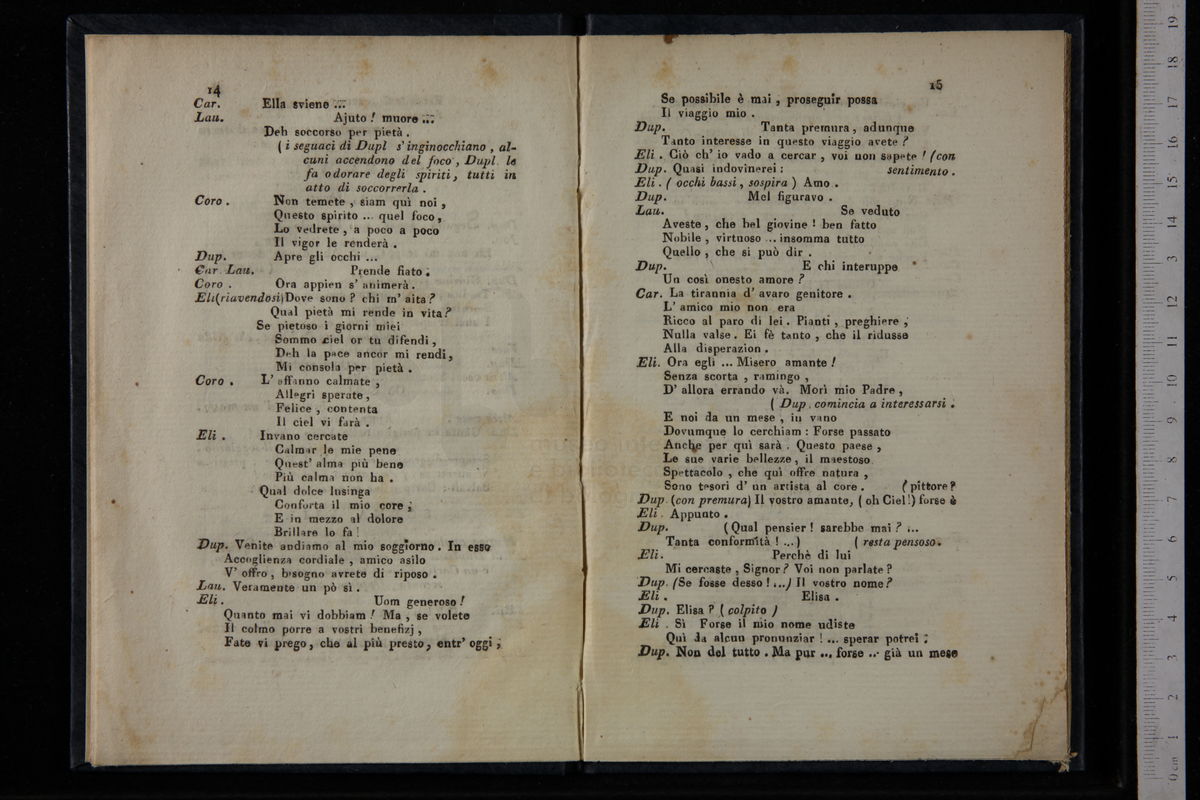 14
Car. Ella sviene ...
Lau. Ajuto! muore ...
Deh soccorso per pietà.
(i seguaci di Dupl s' inginocchiano, al-
cuni accendono del foco, Dupl. le
fa odorare degli spiriti, tutti in
atto di soccorrerla.
Coro. Non temete, siam quì noi,
Questo spirito ... quel foco,
Lo vedrete, a poco a poco
Il vigor le renderà.
Dup. Apre gli occhi ...
Car. Lau. Prende fiato.
Coro. Ora appien s' animerà.
Eli(riavendosi)Dove sono? chi m' aita?
Qual pietà mi rende in vita?
Se pietoso i giorni miei
Sommo ciel or tu difendi,
Deh la pace ancor mi rendi,
Mi consola per pietà.
Coro. L' affanno calmate,
Allegri sperate,
Felice, contenta
Il ciel vi farà.
Eli. Invano cercate
Calmar le mie pene
Quest' alma più bene
Più calma non ha.
Qual dolce lusinga
Conforta il mio core;
E in mezzo al dolore
Brillare lo fa!
Dup. Venite andiamo al mio soggiorno. In esso
Accoglienza cordiale, amico asilo
V' offro, bisogno avrete di riposo.
Lau. Veramente un pò sì.
Eli. Uom generoso!
Quanto mai vi dobbiam! Ma, se volete
Il colmo porre a vostri benefizj,
Fate vi prego, che al più presto, entr' oggi;
15
Se possibile è mai, proseguir possa
Il viaggio mio.
Dup. Tanta premura, adunque
Tanto interesse in questo viaggio avete?
Eli. Ciò ch' io vado a cercar, voi non sapete! (con
Dup. Quasi indovinerei: sentimento.
Eli. (occhi bassi, sospira) Amo.
Dup. Mel figuravo.
Lau. Se veduto
Aveste, che bel giovine! ben fatto
Nobile, virtuoso ... insomma tutto
Quello, che si può dir.
Dup. E chi interuppe
Un così onesto amore?
Car. La tirannia d' avaro genitore.
L' amico mio non era
Ricco al paro di lei. Pianti, preghiere,
Nulla valse. Ei fè tanto, che il ridusse
Alla disperazion.
Eli. Ora egli ... Misero amante!
Senza scorta, ramingo,
D' allora errando và. Morì mio Padre,
(Dup. comincia a interessarsi.
E noi da un mese, in vano
Dovunque lo cerchiam: Forse passato
Anche per quì sarà. Questo paese,
Le sue varie bellezze, il maestoso
Spettacolo, che quì offre natura,
Sono tesori d' un artista al core. (pittore?
Dup. (con premura) Il vostro amante, (oh Ciel!) forse è
Eli. Appunto.
Dup. (Qual pensier! sarebbe mai? ...
Tanta conformità! ...) (resta pensoso.
Eli. Perchè di lui
Mi cercaste, Signor? Voi non parlate?
Dup. (Se fosse desso! ...) Il vostro nome?
Eli. Elisa.
Dup. Elisa? (colpito)
Eli. Sì Forse il mio nome udiste
Quì da alcun pronunziar! ... sperar potrei:
Dup. Non del tutto. Ma pur ... forse ... già un mese